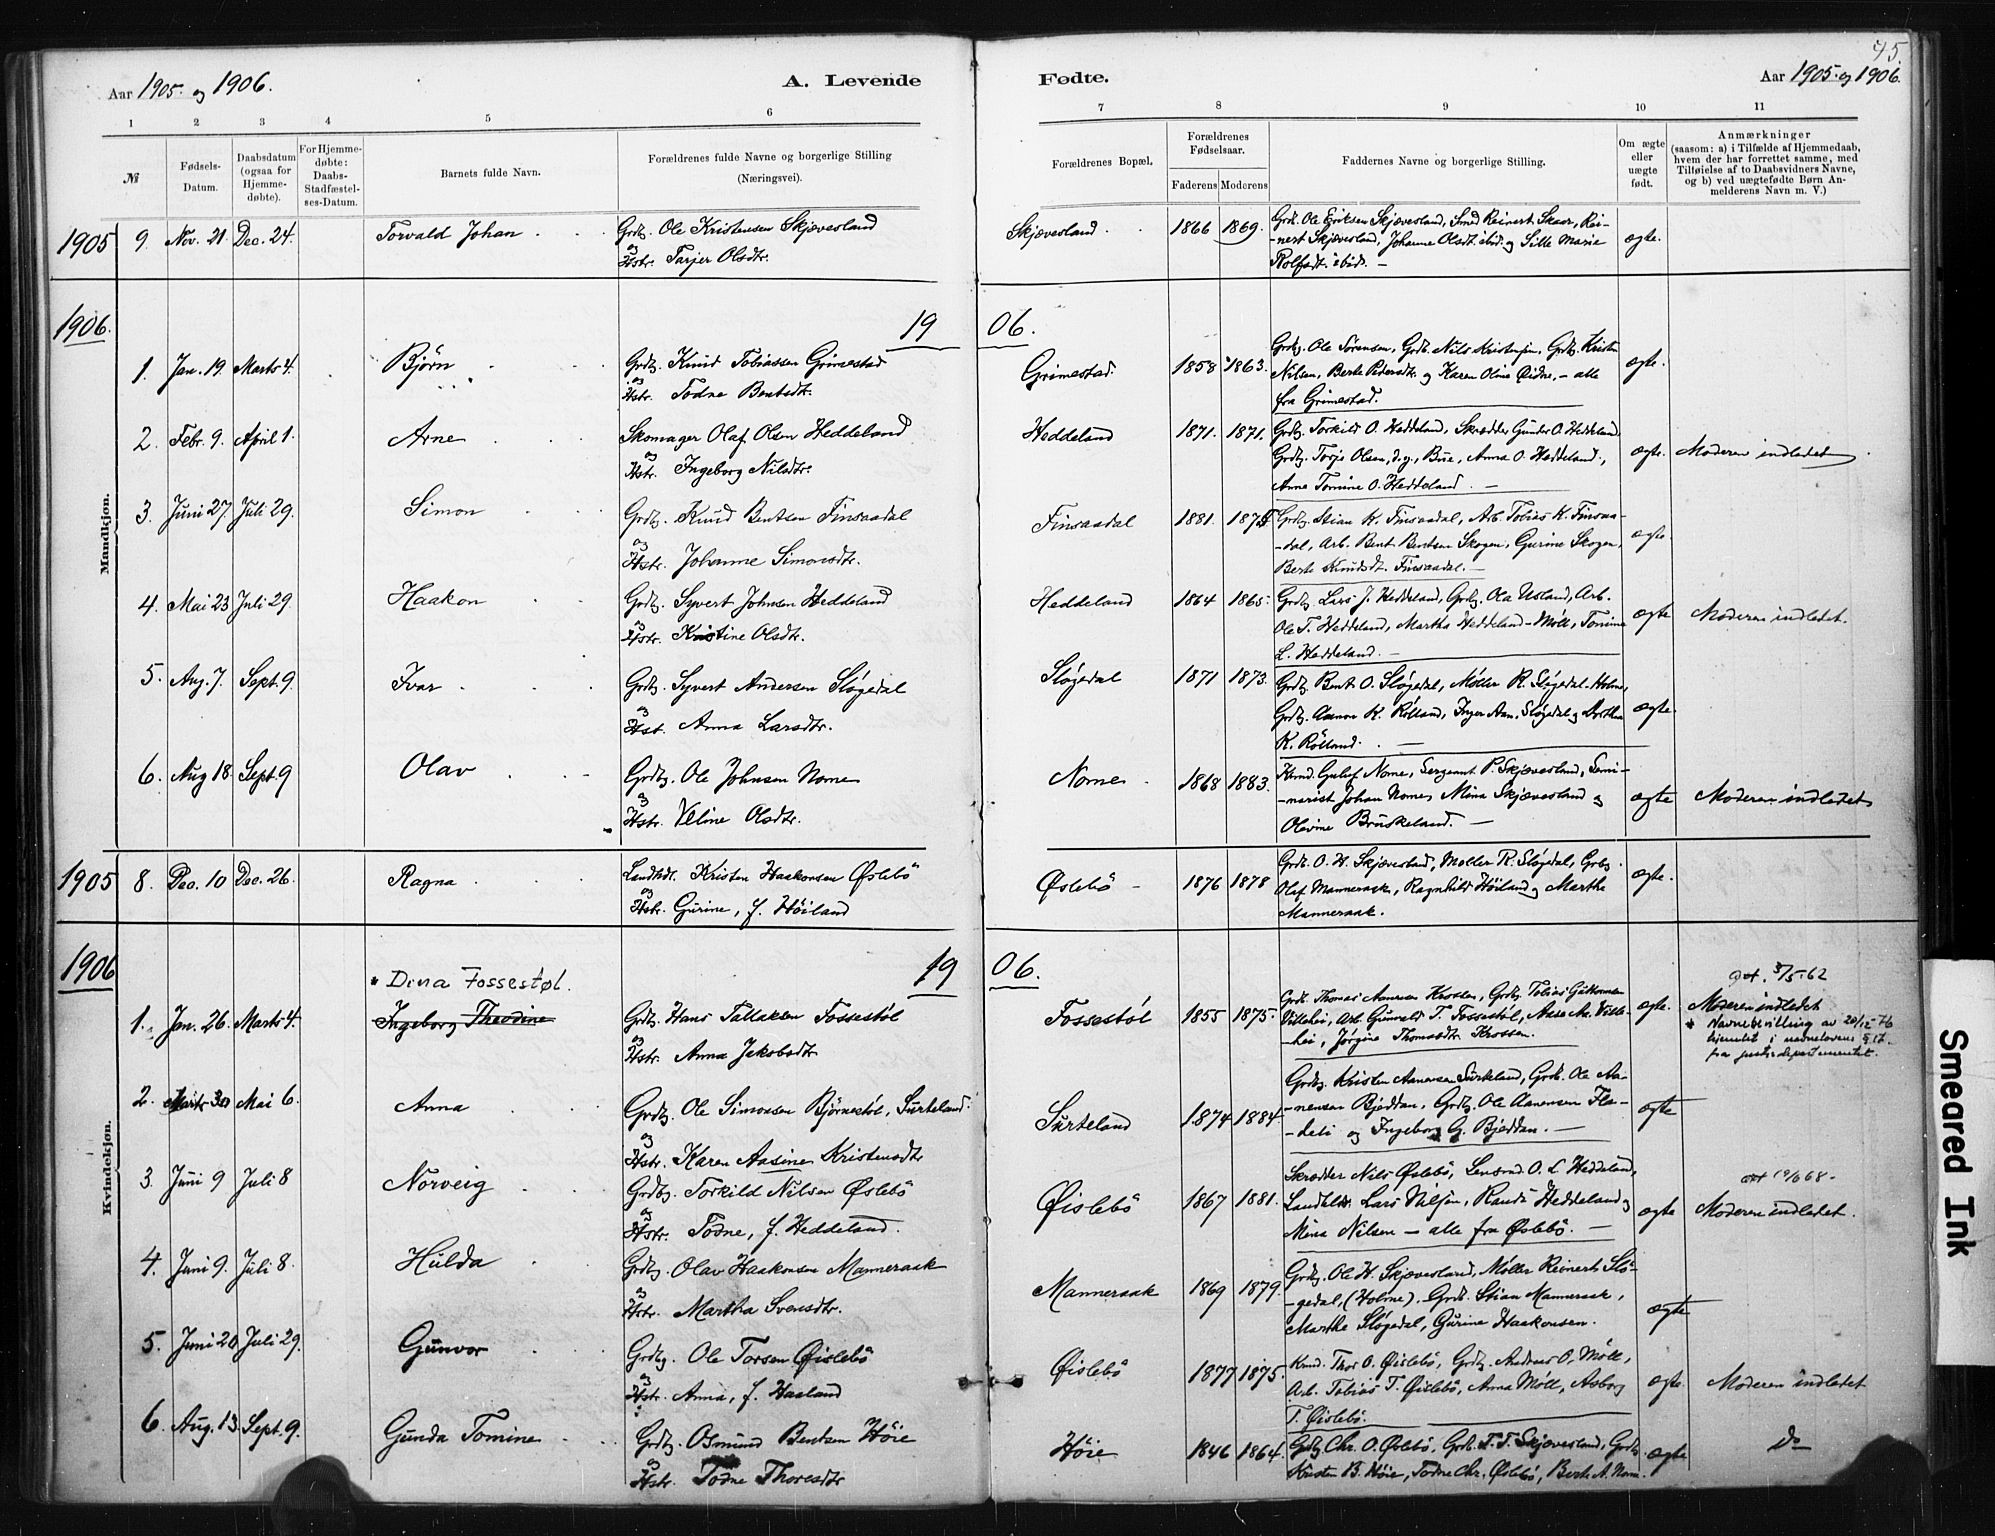 45.
Aar 1905. og 1906.
A. Levende
Fødte.
Aar 1905. og 1906.
1 2 3 4 5 6 7 8 9 10 11
№
Fødsels-
Datum.
Daabsdatum
(ogsaa for
Hjemme-
døbte).
For Hjemme-
døbte:
Daabs-
Stadfæstel-
ses-Datum.
Barnets fulde Navn.
Forældrenes fulde Navne og borgerlige Stilling
(Næringsvei).
Forældrenes Bopæl.
Forældrenes
Fødselsaar.
Faderens Moderens
Faddernes Navne og borgerlige Stilling.
Om ægte
eller
uægte
født.
Anmærkninger
(saasom: a) i Tilfælde af Hjemmedaab,
hvem der har forrettet samme, med
Tilføielse af to Daabsvidners Navne,
og b) ved uægtefødte Børn An-
melderens Navn m. V.)
1905 9. Nov. 21. Dec. 24. Torvald Johan
Grdb. Ole Kristensen Skjævesland
og
Hstr. Tarjer Olsdtr.
Skjævesland 1866 1869.
Grdb. Ole Eriksen Skjævesland, Smed Reinert Skaar, Rei-
-nert Skjævesland, Johanne Olsdt. ibid. og Sille Marie
Rolfsdt. ibid. -
ægte.
1906. 19 06.
Mandkjøn.
1. Jan. 19. Marts 4. Bjørn
Grdb. Knud Tobiassen Grimestad
og
Hstr. Todne Bentsdtr.
Grimestad 1858 1863.
Grdbg. Ole Sørensen, Grdb. Nils Kristensen, Grdb. Kristen
Nilsen, Berte Pedersdtr. og Karen Oline Øidne, - alle
fra Grimestad.
ægte.
2. Febr. 9. April 1. Arne
Skomager Olaf Olsen Heddeland
og
Hstr. Ingeborg Nilsdtr.
Heddeland 1871. 1871.
Grdbg. Torkild O. Heddeland, Skrædder Gunder O. Heddeland,
Grdbg. Torje Olsen, d.y., Bue, Anna O. Heddeland.,
Anne Tomine O. Heddeland. -
ægte. Moderen indledet
3. Juni 27. Juli 29. Simon
Grdbg. Knud Bentsen Finsaadal
og
Hstr. Johanne Simonsdtr.
Finsaadal 1881.
Grdbg. Stian K. Finsaadal, Arb. Tobias K. Finsaa-
-dal, Arb. Bent Bentsen Skogen, Gurine Skogen,
Berte Knudsdt. Finsaadal. -
ægte.
4. Mai 23 Juli 29. Haakon
Grdbg. Syvert Johnsen Heddeland
og
Hstr. Kristine Olsdtr.
Heddeland 1864 1865.
Grdbg. Lars J. Heddeland, Grdbg. Ola Usland, Arb.
Ole T. Heddeland, Martha Heddeland-Møll, Tomine
L. Heddeland. -
ægte Moderen indledet.
5. Aug. 7. Sept. 9. Ivar
Grdbg. Syvert Andersen Sløgedal
og
Hst. Anna Larsdtr.
Sløgedal 1871 1873.
Grdbg. Bent O. Sløgedal, Møller R. Sløgedal-Holme,
Grdbg. Aanon K. Røiland, Inger Aan. Sløgedal og Dorthea
K. Røiland. -
ægte.
6. Aug 18. Sept. 9 Olav
Grdbg. Ole Johnsen Nome
og
Hstr. Veline Olsdtr.
Nome 1868 1883.
Hrnd. Gulof Nome, Sergeant P. Skjævesland, Semi-
-narist Johan Nome, Mina Skjævesland og
Olevine Bruskeland. -
ægte Moderen indledet
1905 8. Dec. 10 Dec. 26. Ragna
Landhdl. Kristen Haakonsen Øslebö
og
Hstr. Gurine, f. Höiland
Øslebö - 1876 1878
Grdb. O. H. Skjævesland, Møller R. Sløgedal, Grbg.
Olaf Manneraak, Ragnhild Höiland og Marthe
Manneraak.
ægte.
1906 19 06.
Kvindekjøn.
* Dina Fossestøl.
1. Jan. 26. Marts 4. Ingeborg Theodine
Grdb. Hans Tallaksen Fossestøl
og
Hstr. Anna Jakobsdtr
Fossestøl 1855 1875.
Grdb. Thomas Aanensen Krossen, Grdbg. Tobias Guttormsen
Villehei, Arb. Gunvald T. Fossestøl, Aase An. Ville-
-hei, Jørgine Thomasdtr Krossen.
ægte.
døt. 3/5-62
Moderen indledet
* Navnebevilling av 20/12-76
hjemlet i navnelovens § 17.
fra justisdepartementet.
2. Marts 30 Mai 6. Anna
Grdbg Ole Simonsen Bjørnestøl, Surteland.
og
Hstr. Karen Aasine Kristensdtr
Surteland 1874 1884.
Grdbg. Kristen Aanensen Surteland, Grdb. Ole Aa-
-nensen Bjøddan, Grdbg. Ole Aanensen Fla-
-deli og Ingeborg G. Bjøddan. -
ægte
3. Juni 9 Juli 8 Norveig
Grdbg. Torkild Nilsen Øslebö
og
Hstr. Todne, f. Heddeland.
Øislebö 1867 1881.
Skrædder Nils Øslebö, Lensmd. O. L. Heddeland,
Landhdl. Lars Nilsen, Randi Heddeland og
Mina Nilsen - alle fra Øslebö. -
ægte Moderen indledet.
4. Juni 9. Juli 8. Hulda
Grdbg. Olav Haakonsen Manneraak
og
Hstr. Martha Svensdtr.
Manneraak 1869 1879.
Grdbg. Ole H. Skjævesland, Møller Reinert Slø-
-gedal, (Holme). Grdb. Stian Manneraak,
Marthe Sløgedal, Gurine Haakonsen.
ægte
5. Juni 20 Juli 29. Gunvor
Grdbg. Ole Torsen Øislebö
og
Hstr. Anna, f. Haaland
Øislebö 1877 1875.
Knud. Thor O. Øislebö, Grdbg. Andreas O. Møll,
Arb. Tobias T. Øislebö, Anna Møll, Asborg
T. Øislebö.
ægte. Moderen indledet
6. Aug. 13. Sept. 9. Gunda Tomine
Grdbg. Osmund Bentsen Höie
og
Hstr. Todne Thoresdtr
Höie 1846 1864.
Grdbg Chr. O. Øslebö, Grdb. T. T. Skjævesland, Grdb.
Kristen B. Höie, Todne Chr. Øslebö, Berte A. Nome.
ægte Do
Smeared Ink